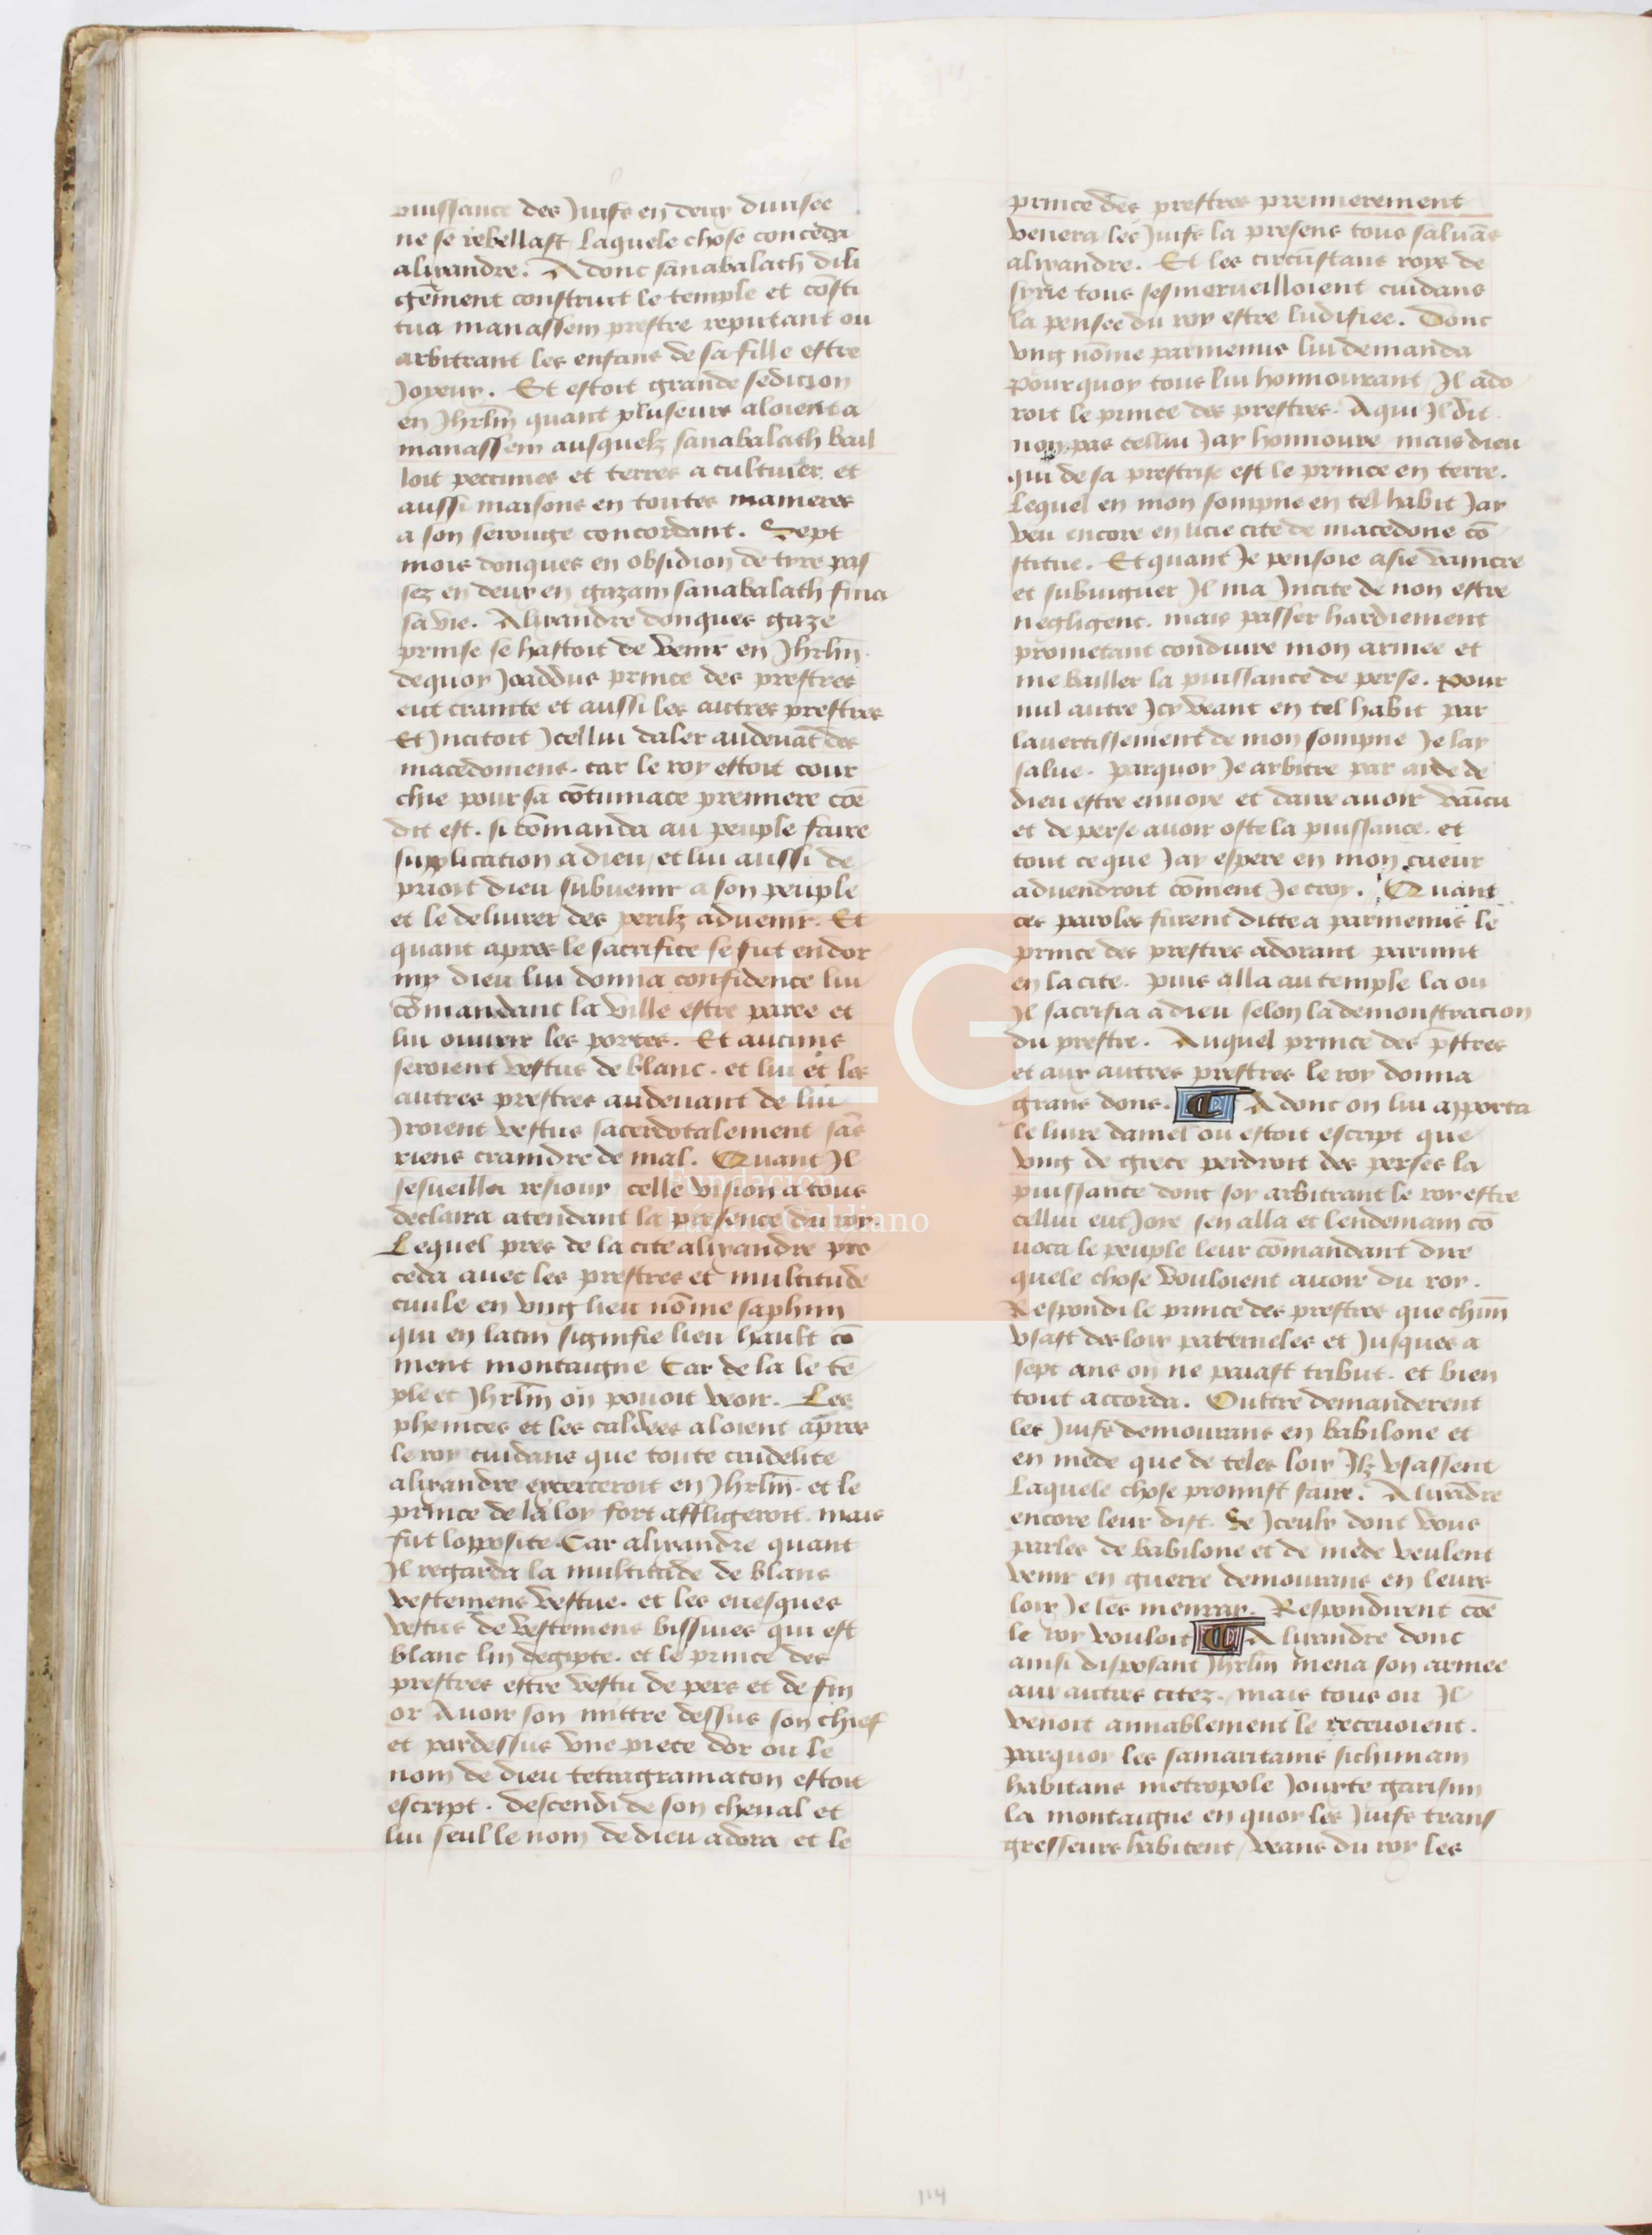 puissance des Juifs en deux diuisee
ne se rebellast laquele chose conceda
alixandre. Adonc sanabalath dili
gēment construit le temple et cōsti
tua manassem prestre reputant ou
arbitrant les enfans de sa fille estre
Joyeux. Et estoit grande sedicion
en Jhrlm̄ quant pluseurs aloient a
manassem ausquelz sanabalath bail
loit peccunes et terres a cultiuer et
aussi maisons en toutes manieres
a son serouge concordant. Sept
mois donques en obsidion de tyre pas
sez en deux en gazam sanabalath fina
sa vie. Alixandre donques gaze
prinse se hastoit de venir en Jhrlm̄.
dequoy Joaddus prince des prestres
eut crainte et aussi les autres prestres
Et Jncitoit Jcellui daler audeuāt des
macedoniens. car le roy estoit cour
chie pour sa cōtumace premiere cōe
dit est. si cōmanda au peuple faire
supplication a dieu / et lui aussi de
prioit dieu subuenir a son peuple
et le deliurer des perilz aduenir. Et
quant apres le sacrifice se fut endor
my dieu lui donna confidence lui
cōmandant la ville estre paree et
lui ouurir les portes. Et aucuns
seroient vestus de blanc. et lui et les
autres prestres audeuant de lui
Jroient vestus sacerdotalement sās
riens craindre de mal. Quant Jl
sesueilla resiouy celle vision a tous
declaira atendant la presence du roy.
Lequel pres de la cite alixandre pro
ceda auec les prestres et multitude
ciuile en vng lieu nōme saphim
qui en latin signifie lieu hault cō
ment montaigne Car de la le tē
ple et Jhrlm̄ on pouoit veoir. Les
phenices et les caldees aloient apres
le roy cuidans que toute crudelite
alixandre excerceroit en Jhrlm̄. et le
prince de la loy fort affligeroit. mais
fut lopposite. Car alixandre quant
Jl regarda la multitude de blans
vestemens vestue. et les euesques
vestus de vestemens bissines qui est
blanc lin degipte. et le prince des
prestres estre vestu de pers et de fin
or Auoir son mittre dessus son chief
et pardessus vne piece dor ou le
nom de dieu tetragramaton estoit
escript. descendi de son cheual et
lui seul le nom de dieu adora et le
prince des prestres premierement
venera / les Juifs la presens tous saluās
alixandre. Et les circūstans roys de
syrie tous sesmerueilloient cuidans
la pensee du roy estre ludifiee. Donc
vng nōme parmenius lui demanda
pourquoy tous lui honnourant / Jl ado
roit le prince des prestres. A qui Jl dit.
non pas cellui Jay honnoure mais dieu
qui de sa prestrise est le prince en terre.
Lequel en mon sompne en tel habit Jay
veu encore en licie cite de macedone cō
stitue. Et quant Je pensoie asie vaincre
et subiuguer Jl ma Jncite de non estre
negligent. mais passer hardiement
prometant conduire mon armee et
me bailler la puissance de perse. Pour
nul autre Jcy veant en tel habit par
lauertissement de mon sompne Je lay
salue. parquoy Je arbitre par aide de
dieu estre enuoye et daire auoir vaīcu
et de perse auoir oste la puissance. et
tout ce que Jay espere en mon cueur
aduendroit cōment Je croy. Quant
ces paroles furent ditte a parmenius le
prince des prestres adorant paruint
en la cite. puis alla au temple la ou
Jl sacrifia a dieu selon la demonstracion
du prestre. Auquel prince des p̄stres
et aux autres prestres le roy donna
grans dons. Adonc on lui apporta
le liure daniel ou estoit escript que
vng de grece perdroit des perses la
puissance dont soy arbitrant le roy estre
cellui eut Joye sen alla et lendemain cō
uoca le peuple leur cōmandant dire
quele chose vouloient auoir du roy.
Respondi le prince des prestres que chūn
vsast des loix patrieles et Jusques a
sept ans on ne paiast tribut. et bien
tout accorda. Oultre demanderent
les Juifs demourans en babilone et
en mede que de teles loix Jlz vsassent
Laquele chose promist faire. Alixādre
encore leur dist. Se Jceulx dont vous
parles de babilone et de mede veulent
venir en guerre demourans en leurs
loix Je les menray. Respondirent cōe
le roy vouloit Alixandre donc
ainsi disposant Jhrlm̄ mena son armee
aux autres citez. mais tous ou Jl
venoit amiablement le receuoient.
parquoy les samaritains sichimam
habitans metropole Jouxte garisim
la montaigne en quoy les Juifs trans
gresseurs habitent / veans du roy les
114
FLG
Fundación
Lázaro Galdiano